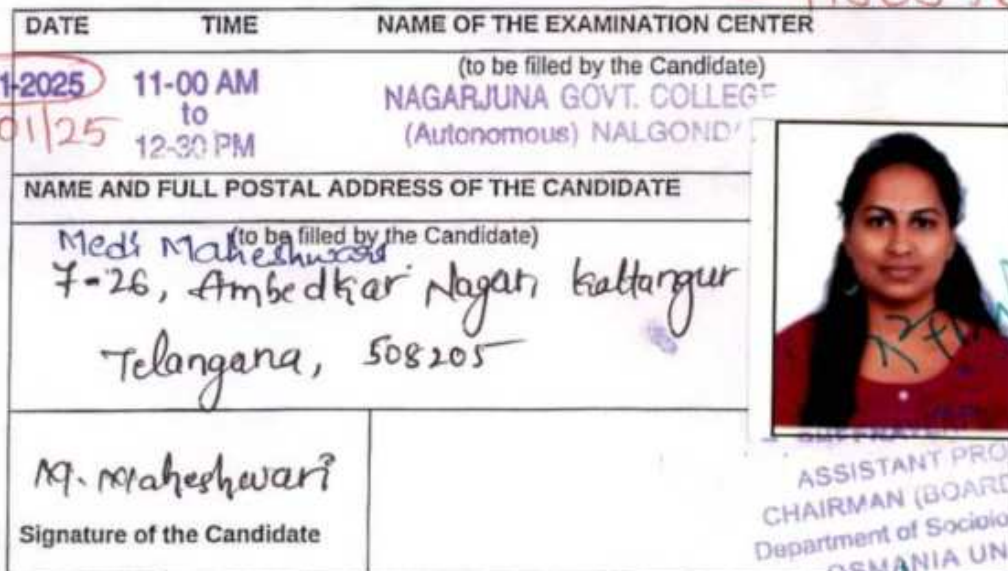 DATE TIME NAME OF THE EXAMINATION CENTER
(to be filled by the Candidate)
1-2025 11-00 AM
to
12-30 PM
01/25
NAGARJUNA GOVT. COLLEGE
(Autonomous) NALGOND
NAME AND FULL POSTAL ADDRESS OF THE CANDIDATE
(to be filled by the Candidate)
Medi Maheshwari
7-26, Ambedkar Nagar, Kattangur
Telangana, 508205
M. Maheshwari
Signature of the Candidate
ASSISTANT PRO
CHAIRMAN (BOARD
Department of Sociolo
OSMANIA UN